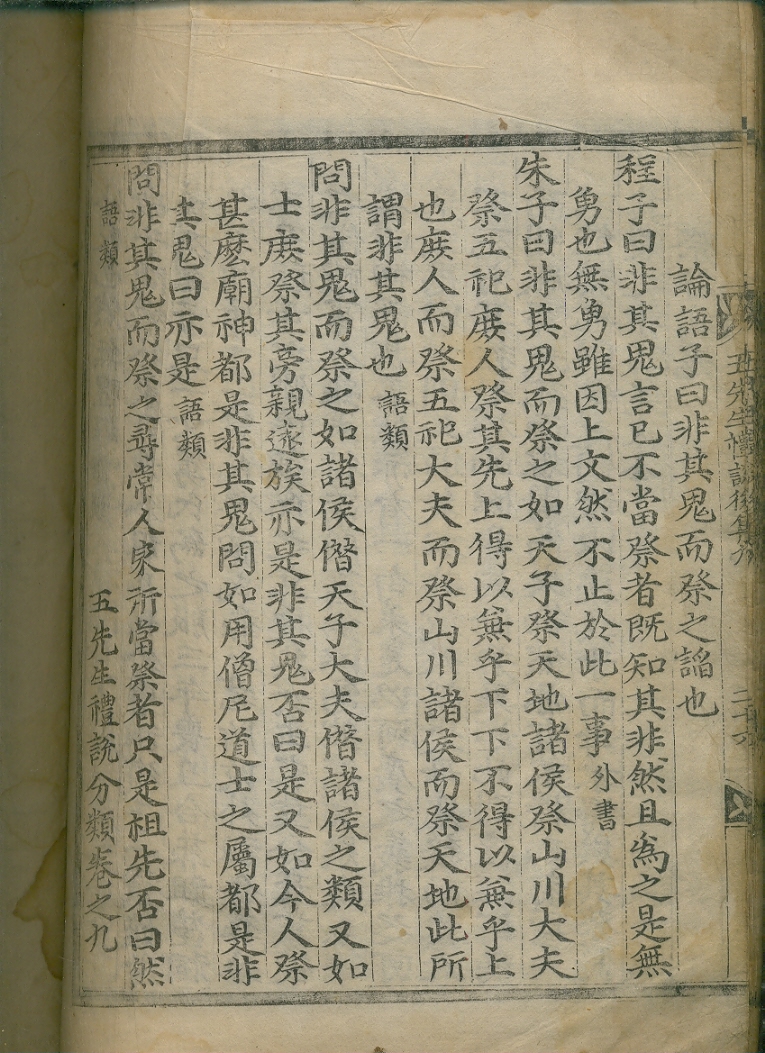 五先生禮說後集九
二十六
論語子曰非其鬼而祭之諂也
程子曰非其鬼言已不當祭者既知其非然且爲之是無
勇也無勇雖因上文然不止於此一事外書
朱子曰非其鬼而祭之如天子祭天地諸侯祭山川大夫
祭五祀庻人祭其先上得以兼乎下下不得以兼乎上
也庻人而祭五祀大夫而祭山川諸侯而祭天地此所
謂非其鬼也語類
問非其鬼而祭之如諸侯僭天子大夫僭諸侯之類又如
士庻祭其旁親遠族亦是非其鬼否曰是又如今人祭
甚麽廟神都是非其鬼問如用僧尼道士之屬都是非
其鬼曰亦是語類
問非其鬼而祭之尋常人家所當祭者只是祖先否曰然
語類
五先生禮說分類卷之九